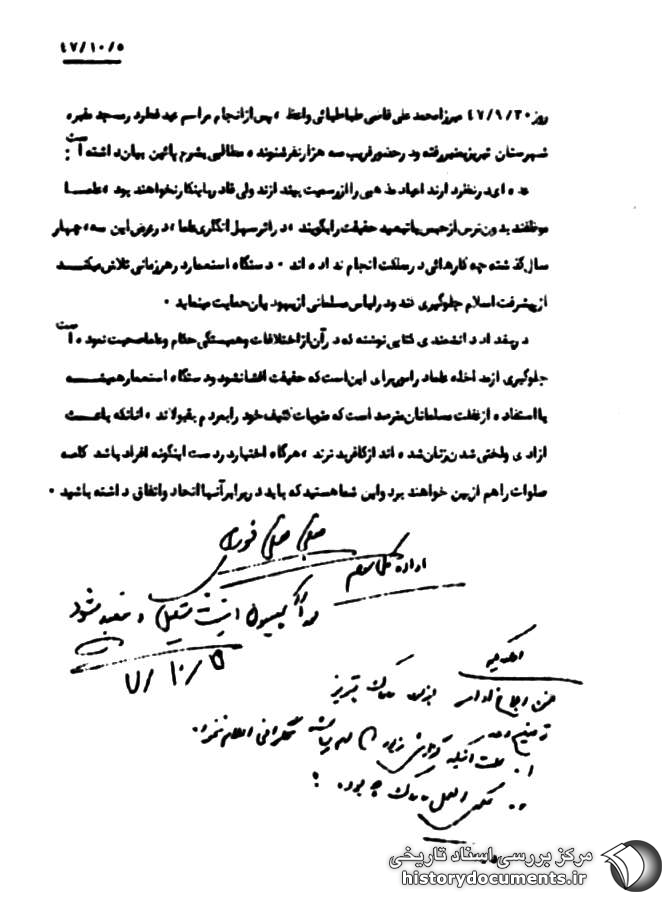 ۴۷/۱۰/۵
روز ۴۷/۹/۳۰ میرزا محمد علی قاضی طباطبائی واعظ ، پس از انجام مراسم عید فطر در مسجد مقبره
شهرستان تبریز بمنبر رفته و در حضور قریب سه هزار نفر شنونده مطالبی بشرح پائین بیان داشته است :
عده ای در نظر دارند اعیاد مذهبی را از رسمیت بیندازند ولی قادر باینکار نخواهند بود ، علما
موظفند بدون ترس از حبس یا تبعید حقیقت را بگویند ، در اثر سهل انگاری علما ، در عرض این سه ، چهار
سال گذشته چه کارهائی در مملکت انجام نداده اند . دستگاه استعمار در هر زمانی تلاش میکند
از پیشرفت اسلام جلوگیری کند و در لباس مسلمانی از یهودیان حمایت مینماید .
در بغداد دانشمندی کتابی نوشته که در آن از اختلافات و همبستگی حکام و علما صحبت نموده است
جلوگیری از مداخله علماء در امور برای این است که حقیقت افشا نشود و دستگاه استعمار همیشه
با استفاده از غفلت مسلمانان مترصد است که منویات کثیف خود را بمردم بقبولاند ، آنانکه باعث
آزادی و لختی شدن زنان شده اند از کافر بدترند ، هرگاه اختیار در دست اینگونه افراد باشد کلمه
صلوات را هم از بین خواهند برد و این شما هستید که باید در برابر آنها اتحاد و اتفاق داشته باشید .
خیلی خیلی فوری
اداره کل سوم
کمیسیون امنیت تشکیل و تبعید شود
۷/۱۰/۵
مدارک تبریز
مرکز بررسی اسناد تاریخی
historydocuments.ir